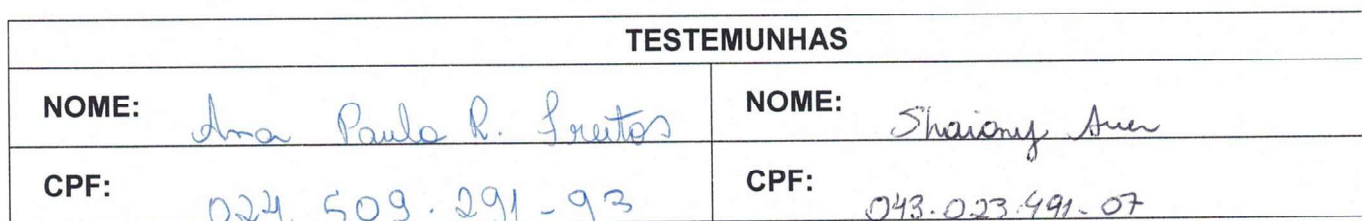 TESTEMUNHAS
NOME: Ana Paula R. Freitas
NOME: Shaiany Auer
CPF: 024.509.291-93
CPF: 043.023.491-07